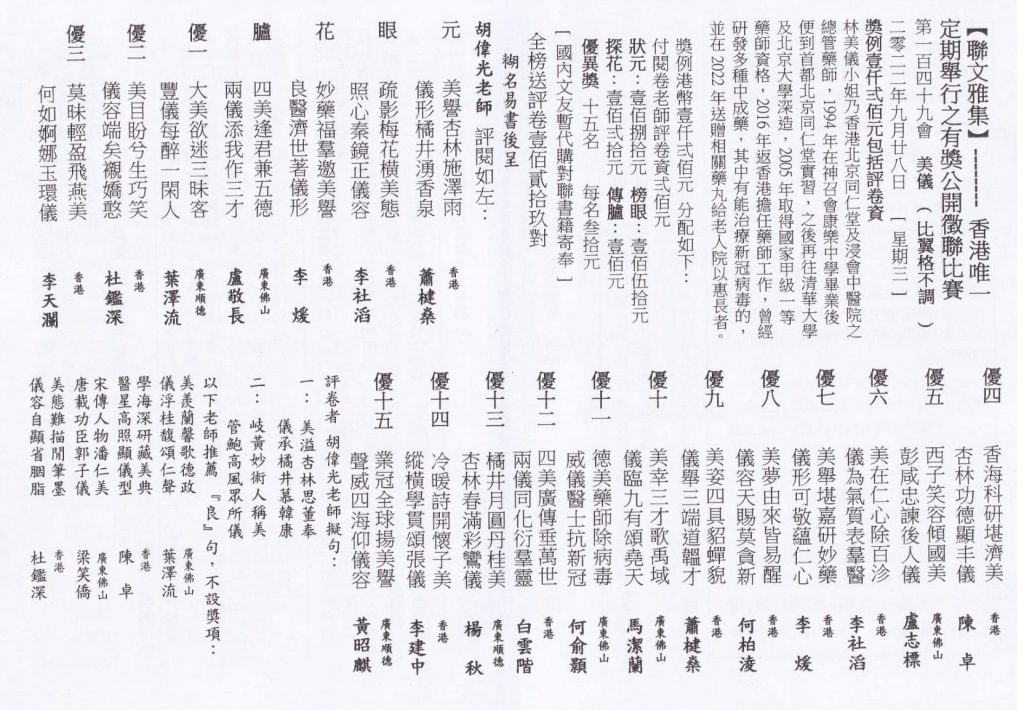 【聯文雅集】 ┅┅┅ 香港唯一
定期舉行之有獎公開徵聯比賽
第一百四十九會 美儀 ( 比翼格不調 )
二零二二年九月廿八日 [ 星期三 ]
獎例壹仟弍佰元包括評卷資
林美儀小姐乃香港北京同仁堂及浸會中醫院之
總管藥師，1994 年在神召會康樂中學畢業後
便到首都北京同仁堂實習，之後再往清華大學
及北京大學深造，2005 年取得國家甲級一等
藥師資格，2016 年返香港擔任藥師工作，曾經
研發多種中成藥，其中有能治療新冠病毒的，
並在 2022 年送贈相關藥丸給老人院以惠長者。
獎例港幣壹仟弍佰元 分配如下：
付閱卷老師評卷資弍佰元
狀元：壹佰捌拾元 榜眼：壹佰伍拾元
探花：壹佰弍拾元 傳臚：壹佰元
優異獎 十五名 每名叁拾元
[ 國內文友暫代購對聯書籍寄奉 ]
全榜送評卷壹佰貳拾玖對
糊名易書後呈
胡偉光老師 評閱如左：
元 美譽杏林施澤雨
儀形橘井湧香泉 香港 蕭楗桑
眼 疏影梅花橫美態
照心秦鏡正儀容 香港 李社滔
花 妙藥福羣邀美譽
良醫濟世著儀形 香港 李煖
臚 四美逢君兼五德
兩儀添我作三才 廣東佛山 盧敬長
優一 大美欲迷三昧客
豐儀每醉一閑人 廣東順德 葉澤流
優二 美目盼兮生巧笑
儀容端矣襯嬌憨 香港 杜鑑深
優三 莫昧輕盈飛燕美
何如婀娜玉環儀 香港 李天瀾
優四 香海科研堪濟美
杏林功德顯丰儀 香港 陳卓
優五 西子笑容傾國美
彭咸忠諫後人儀 廣東佛山 盧志標
優六 美在仁心除百沴
儀為氣質表羣醫 香港 李社滔
優七 美舉堪嘉研妙藥
儀形可敬蘊仁心 香港 李煖
優八 美夢由來皆易醒
儀容天賜莫貪新 香港 何柏淩
優九 美姿四具貂蟬貌
儀舉三端道韞才 香港 蕭楗桑
優十 美幸三才歌禹域
儀臨九有頌堯天 廣東佛山 馬潔蘭
優十一 德美藥師除病毒
威儀醫士抗新冠 廣東佛山 何俞顥
優十二 四美廣傳垂萬世
兩儀同化衍羣靈 香港 白雲階
優十三 橘井月圓丹桂美
杏林春滿彩鸞儀 廣東順德 楊秋
優十四 冷暖詩開懷子美
縱橫學貫頌張儀 香港 李建中
優十五 業冠全球揚美譽
聲威四海仰儀容 廣東順德 黃昭麒
評卷者 胡偉光老師擬句：
一： 美溢杏林思董奉
儀承橘井慕韓康
二： 岐黃妙術人稱美
管鮑高風眾所儀
以下老師推薦『良』句，不設獎項：
美羨蘭馨歌德政
儀浮桂馥頌仁聲 廣東佛山 葉澤流
學海深研藏美典
醫星高照顯儀型 香港 陳卓
宋傳人物潘仁美
唐載功臣郭子儀 廣東佛山 梁笑僑
美態難描閒筆墨
儀容自顯省胭脂 香港 杜鑑深